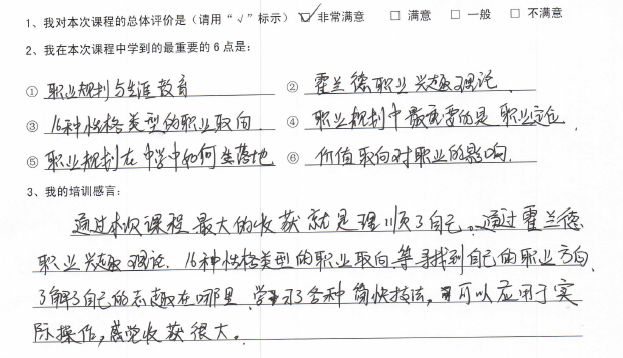 1、我对本次课程的总体评价是（请用“√”标示）☑非常满意 □ 满意 □ 一般 □ 不满意
2、我在本次课程中学到的最重要的6点是：
① 职业规划与生涯教育 ② 霍兰德职业兴趣理论
③ 16种性格类型的职业取向 ④ 职业规划中最重要的是职业定位
⑤ 职业规划在中学中如何生落地 ⑥ 价值取向对职业的影响.
3、我的培训感言：
通过本次课程最大的收获就是理顺了自己。通过霍兰德
职业兴趣理论.16种性格类型的职业取向等寻找到自己的职业方向
了解了自己的志趣在哪里.学习了各种简快技法，可以应用于实
际操作，感觉收获很大。